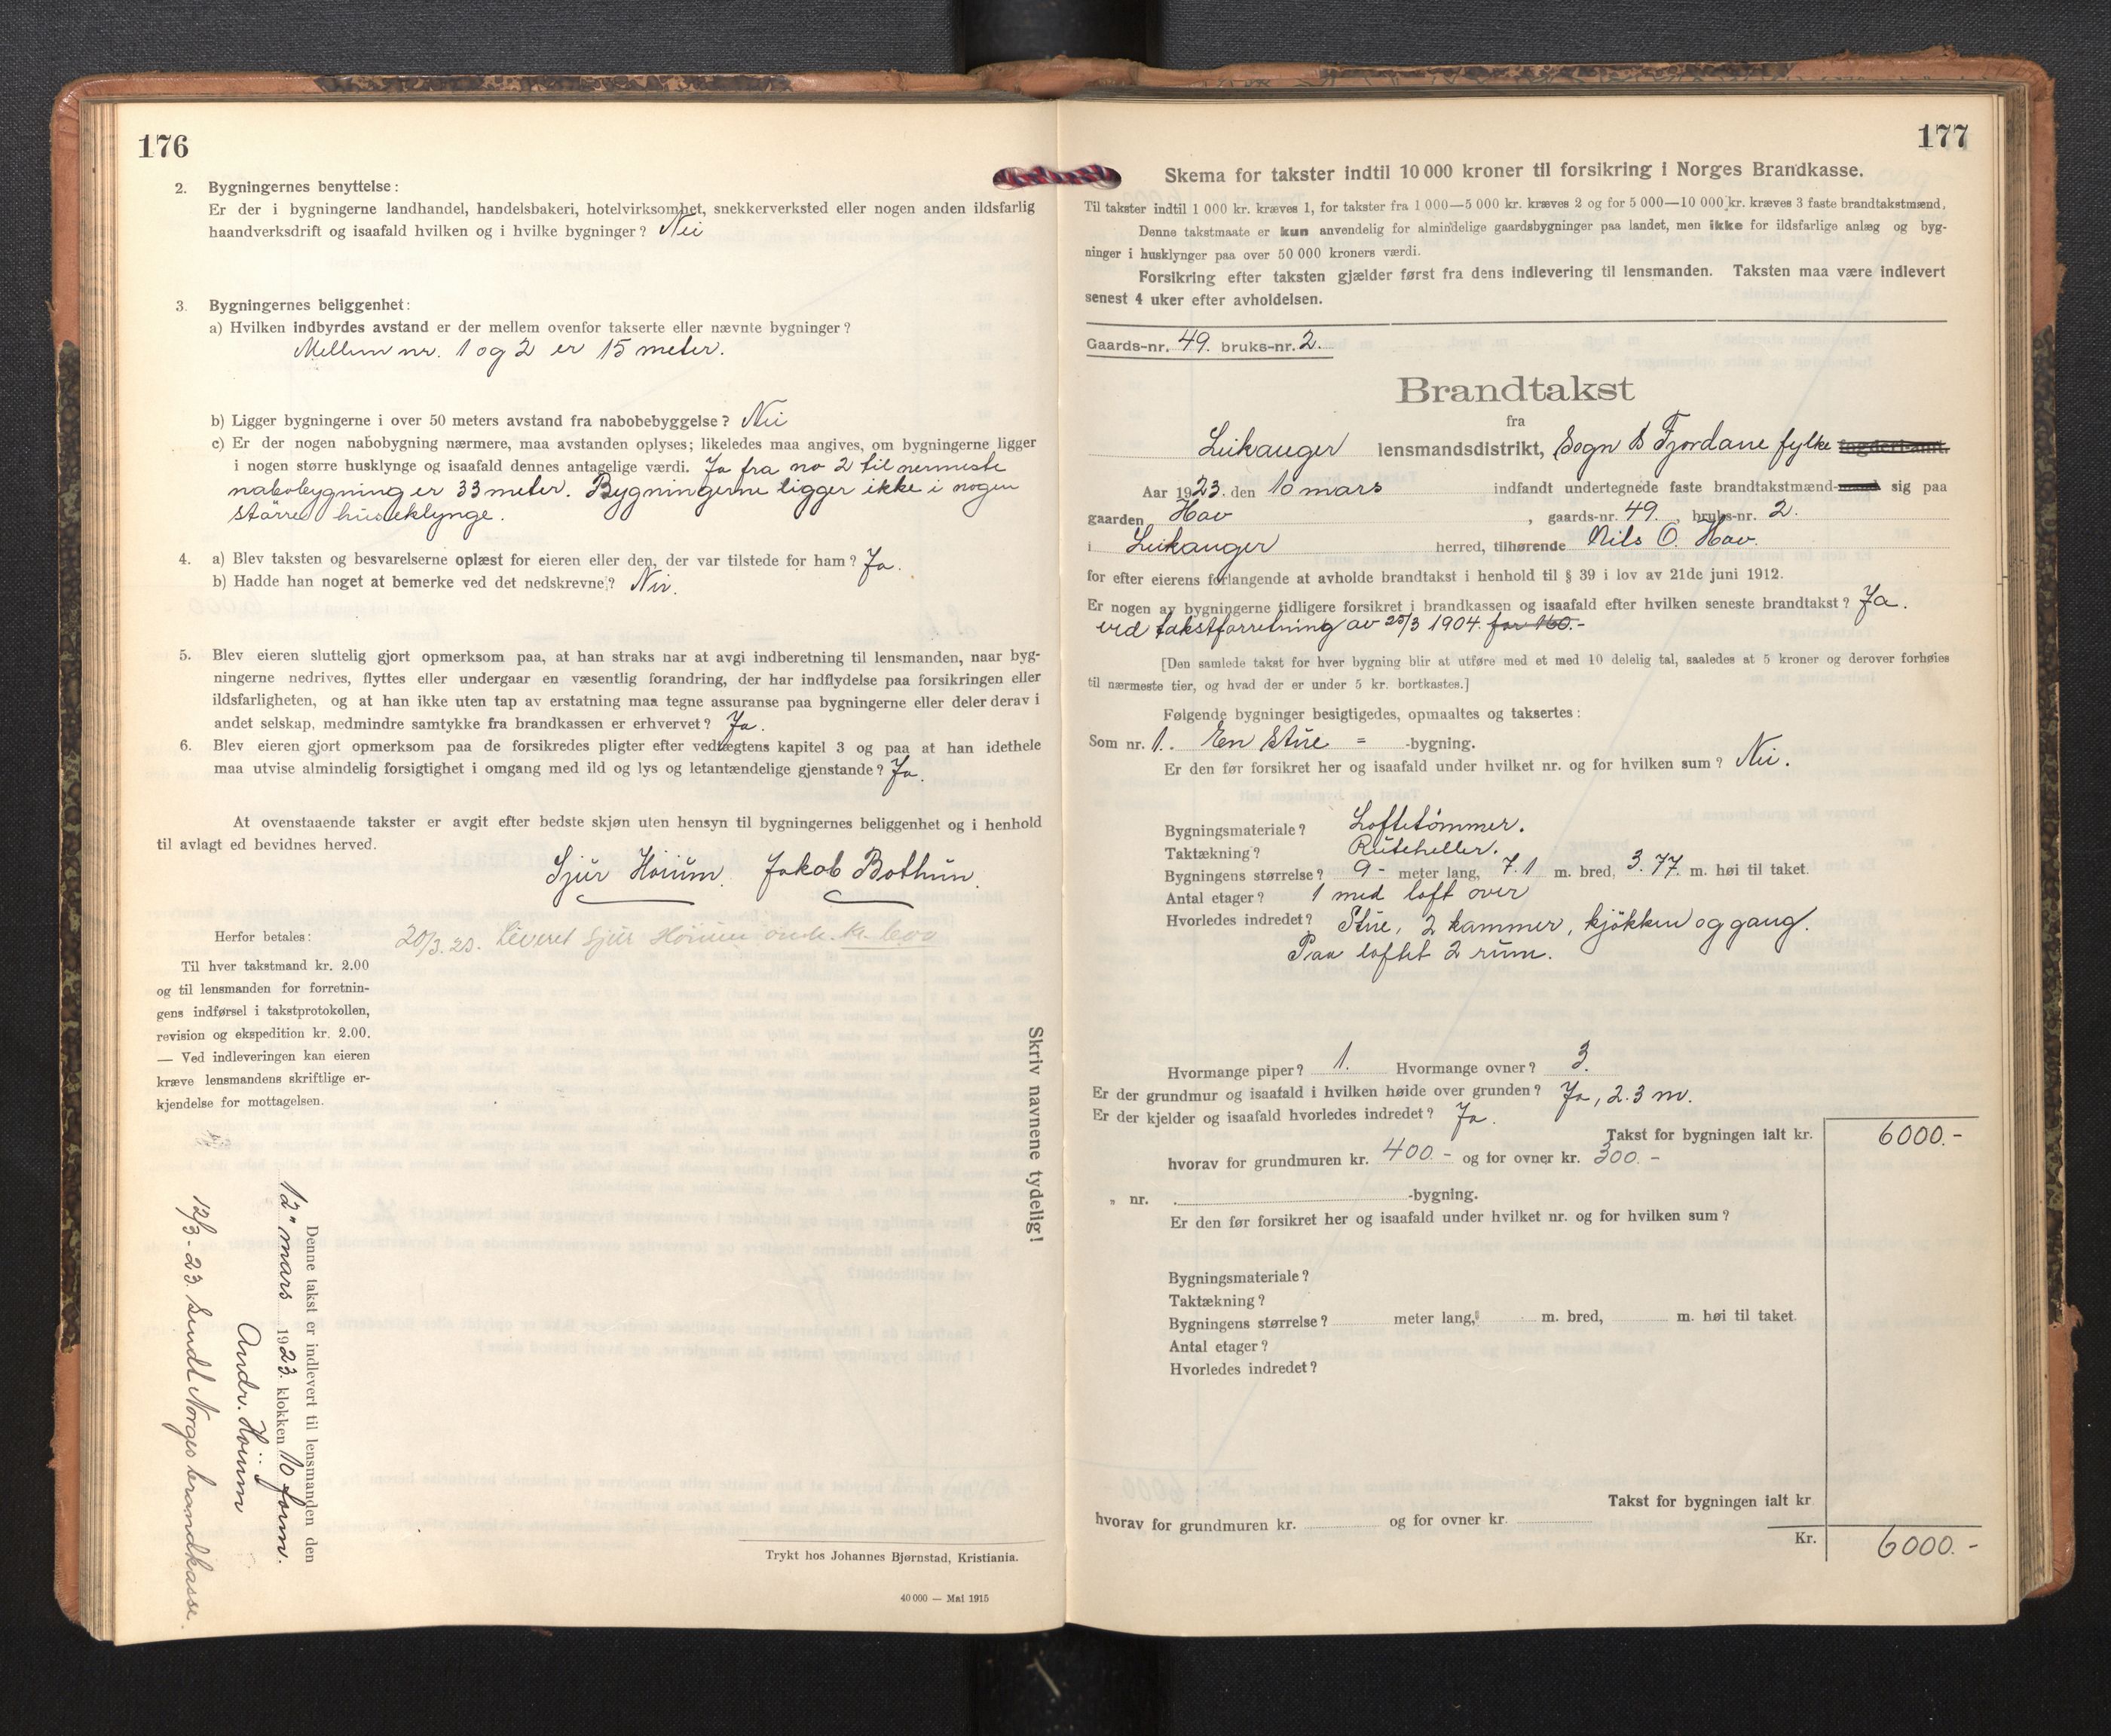 176
2. Bygningernes benyttelse:
Er der i bygningerne landhandel, handelsbakeri, hotelvirksomhet, snekkerverksted eller nogen anden ildsfarlig
haandverksdrift og isaafald hvilken og i hvilke bygninger? Nei
3. Bygningernes beliggenhet:
a) Hvilken indbyrdes avstand er der mellem ovenfor takserte eller nævnte bygninger?
Mellem nr. 1 og 2 er 15 meter.
b) Ligger bygningerne i over 50 meters avstand fra nabobebyggelse? Nei
c) Er der nogen nabobygning nærmere, maa avstanden oplyses; likeledes maa angives, om bygningerne ligger
i nogen større husklynge og isaafald dennes antagelige værdi. Ja fra no 2 til nermeste
nabobygning er 33 meter. Bygningerne ligger ikke i nogen
större huseklynge.
4. a) Blev taksten og besvarelserne oplæst for eieren eller den, der var tilstede for ham? Ja.
b) Hadde han noget at bemerke ved det nedskrevne? Nei.
5. Blev eieren sluttelig gjort opmerksom paa, at han straks har at avgi indberetning til lensmanden, naar byg-
ningerne nedrives, flyttes eller undergaar en væsentlig forandring, der har indflydelse paa forsikringen eller
ildsfarligheten, og at han ikke uten tap av erstatning maa tegne assuranse paa bygningerne eller deler derav i
andet selskap, medmindre samtykke fra brandkassen er erhvervet? Ja.
6. Blev eieren gjort opmerksom paa de forsikredes pligter efter vedtægtens kapitel 3 og paa at han idethele
maa utvise almindelig forsigtighet i omgang med ild og lys og letantændelige gjenstande? Ja.
At ovenstaaende takster er avgit efter bedste skjøn uten hensyn til bygningernes beliggenhet og i henhold
til avlagt ed bevidnes herved.
Sjur Höium. Jakob Bothun.
Herfor betales: 20/3.23. Leveret Sjur Höium kr. 6.00
Til hver takstmand kr. 2.00
og til lensmanden for forretnin-
gens indførsel i takstprotokollen,
revision og ekspedition kr. 2.00.
— Ved indleveringen kan eieren
kræve lensmandens skriftlige er-
kjendelse for mottagelsen.
Skriv navnene tydelig!
Denne takst er indlevert til lensmanden den
12" mars 1923. klokken 10 form.
Andr. Höium
12/3-23. Sendt Norges brandkasse.
Trykt hos Johannes Bjørnstad, Kristiania.
40 000 — Mai 1915
177
Skema for takster indtil 10 000 kroner til forsikring i Norges Brandkasse.
Til takster indtil 1 000 kr. kræves 1, for takster fra 1 000—5 000 kr. kræves 2 og for 5 000—10 000 kr. kræves 3 faste brandtakstmænd.
Denne takstmaate er kun anvendelig for almindelige gaardsbygninger paa landet, men ikke for ildsfarlige anlæg og byg-
ninger i husklynger paa over 50 000 kroners værdi.
Forsikring efter taksten gjælder først fra dens indlevering til lensmanden. Taksten maa være indlevert
senest 4 uker efter avholdelsen.
Gaards-nr. 49. bruks-nr. 2.
Brandtakst
fra
Leikanger lensmandsdistrikt, Sogn & Fjordane fylke
Aar 1923. den 10 mars indfandt undertegnede faste brandtakstmænd sig paa
gaarden Hov, gaards-nr. 49., bruks-nr. 2.
i Leikanger herred, tilhørende Nils O. Hov.
for efter eierens forlangende at avholde brandtakst i henhold til § 39 i lov av 21de juni 1912.
Er nogen av bygningerne tidligere forsikret i brandkassen og isaafald efter hvilken seneste brandtakst? Ja.
ved takstforretning av 25/3 1904. for 160.-
[Den samlede takst for hver bygning blir at utføre med et med 10 delelig tal, saaledes at 5 kroner og derover forhøies
til nærmeste tier, og hvad der er under 5 kr. bortkastes.]
Følgende bygninger besigtigedes, opmaaltes og taksertes:
Som nr. 1. En Stue = -bygning.
Er den før forsikret her og isaafald under hvilket nr. og for hvilken sum? Nei.
Bygningsmateriale? Loftetömmer.
Taktækning? Ruteheller.
Bygningens størrelse? 9 - meter lang, 7.1 m. bred, 3.77 m. høi til taket.
Antal etager? 1 med loft over
Hvorledes indredet? Stue, 2 kammer, kjökken og gang.
Paa loftet 2 rum.
Hvormange piper? 1. Hvormange ovner? 3.
Er der grundmur og isaafald i hvilken høide over grunden? Ja, 2.3 m.
Er der kjelder og isaafald hvorledes indredet? Ja.
Takst for bygningen ialt kr. 6000.-
hvorav for grundmuren kr. 400.- og for ovner kr. 300.-
„ nr. -bygning.
Er den før forsikret her og isaafald under hvilket nr. og for hvilken sum?
Bygningsmateriale?
Taktækning?
Bygningens størrelse? meter lang, m. bred, m. høi til taket.
Antal etager?
Hvorledes indredet?
Takst for bygningen ialt kr
hvorav for grundmuren kr. og for ovner kr.
Kr. 6000.-